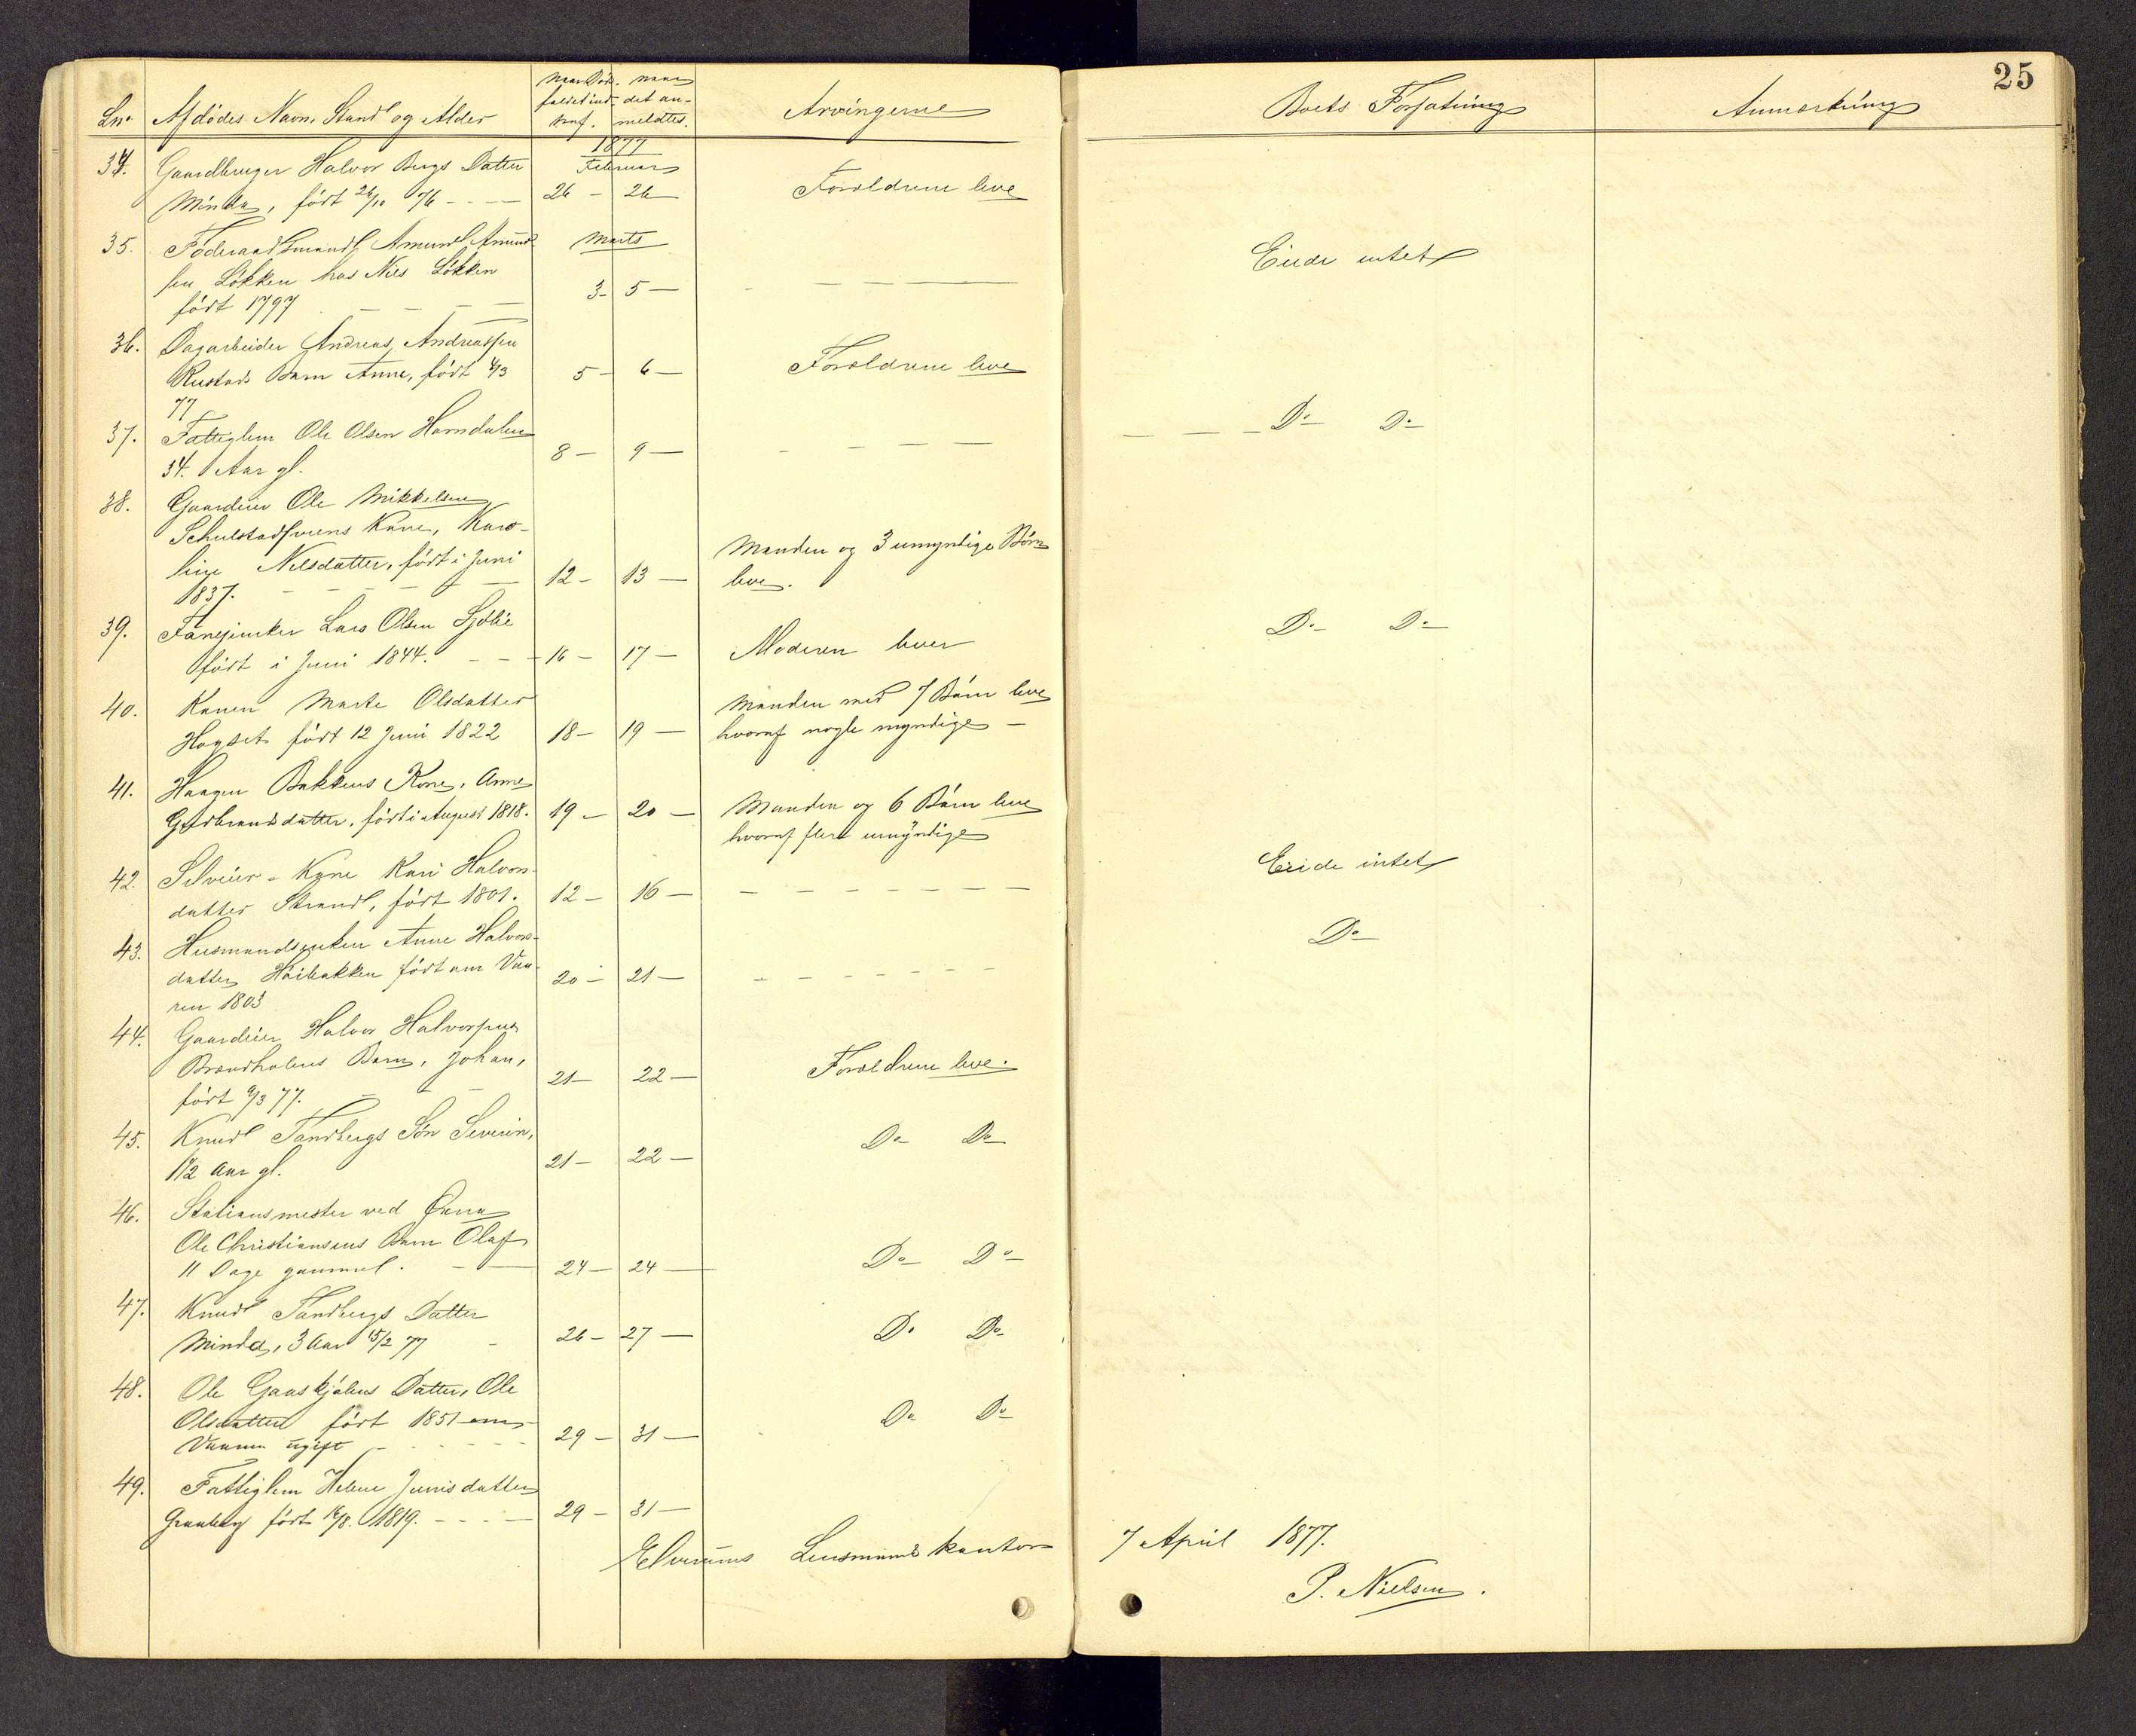 25
Naar Døds- naar
faldet ind- det an-
Ln. Afdødes Navn, Stand og Alder traf. meldtes. Arvingerne Boets Forfatning Anmærkning
1877
34. Gaardbruger Halvor Bergs Datter Februar
Minda, født 26/10 76 - - - 26 - 26 Forældrene leve
35. Føderaadsmand Amund Amund- Marts
sen Løkken hos Nils Løkken Eiede intet
født 1797 3- 5 -
36. Dagarbeider Andreas Andreassen
Rustads Barn Anne, født 4/3 5 - 6 - Forældrene leve
77
37. Fattiglem Ole Olsen Horndalen Do Do
34. Aar gl. 8 - 9 -
38. Gaardeier Ole Mikkelsen
Schulstadsveens Kone, Karo-
line Nilsdatter, født i Juni 12 - 13 - Manden og 3 umyndige Børn
1837. leve.
39. Lars Olsen Sjølie Do Do
født i Juni 1844. - - 16 - 17 - Moderen lever
40. Konen Marte Olsdatter Manden med 7 Børn leve
Hagset født 12 Juni 1822 18 - 19 - hvoraf nogle myndige -
41. Haagen Bakkens Kone, Anne
Gudbrandsdatter, født i August 1818. 19 - 20 - Manden og 6 Børn leve
hvoraf flere umyndige
42. Selveier-Kone Kari Halvors- Eiede intet
datter Strand, født 1801. 12 - 16 -
43. Husmandsenken Anne Halvors- Do
datter Haibakken født om Vaa- 20 - 21 -
ren 1803
44. Gaardeier Halvor Halvorsens
Brændholens Barn, Johan, 21 - 22 - Forældrene leve.
født 9/3 77.
45. Knud Tandbergs Søn Severin, Do Do
1 1/2 Aar gl. 21 - 22 -
46. Stationsmester ved Øxna
Ole Christiansens Barn Olaf Do Do
11 Dage gammel. - - 24 - 24 -
47. Knud Tandbergs Datter
Minda, 3 Aar 15/2 77 26 - 27 - Do Do
48. Ole Gaaskjølens Datter, Ole
Olsdatter født 1851 om Do Do
Vaaren ugift 29 - 31 -
49. Fattiglem Helene Jensdatter
Granberg født 16/8. 1819. - - - 29 - 31 -
Elverums Lensmandskontor 7 April 1877.
P. Nielsen.